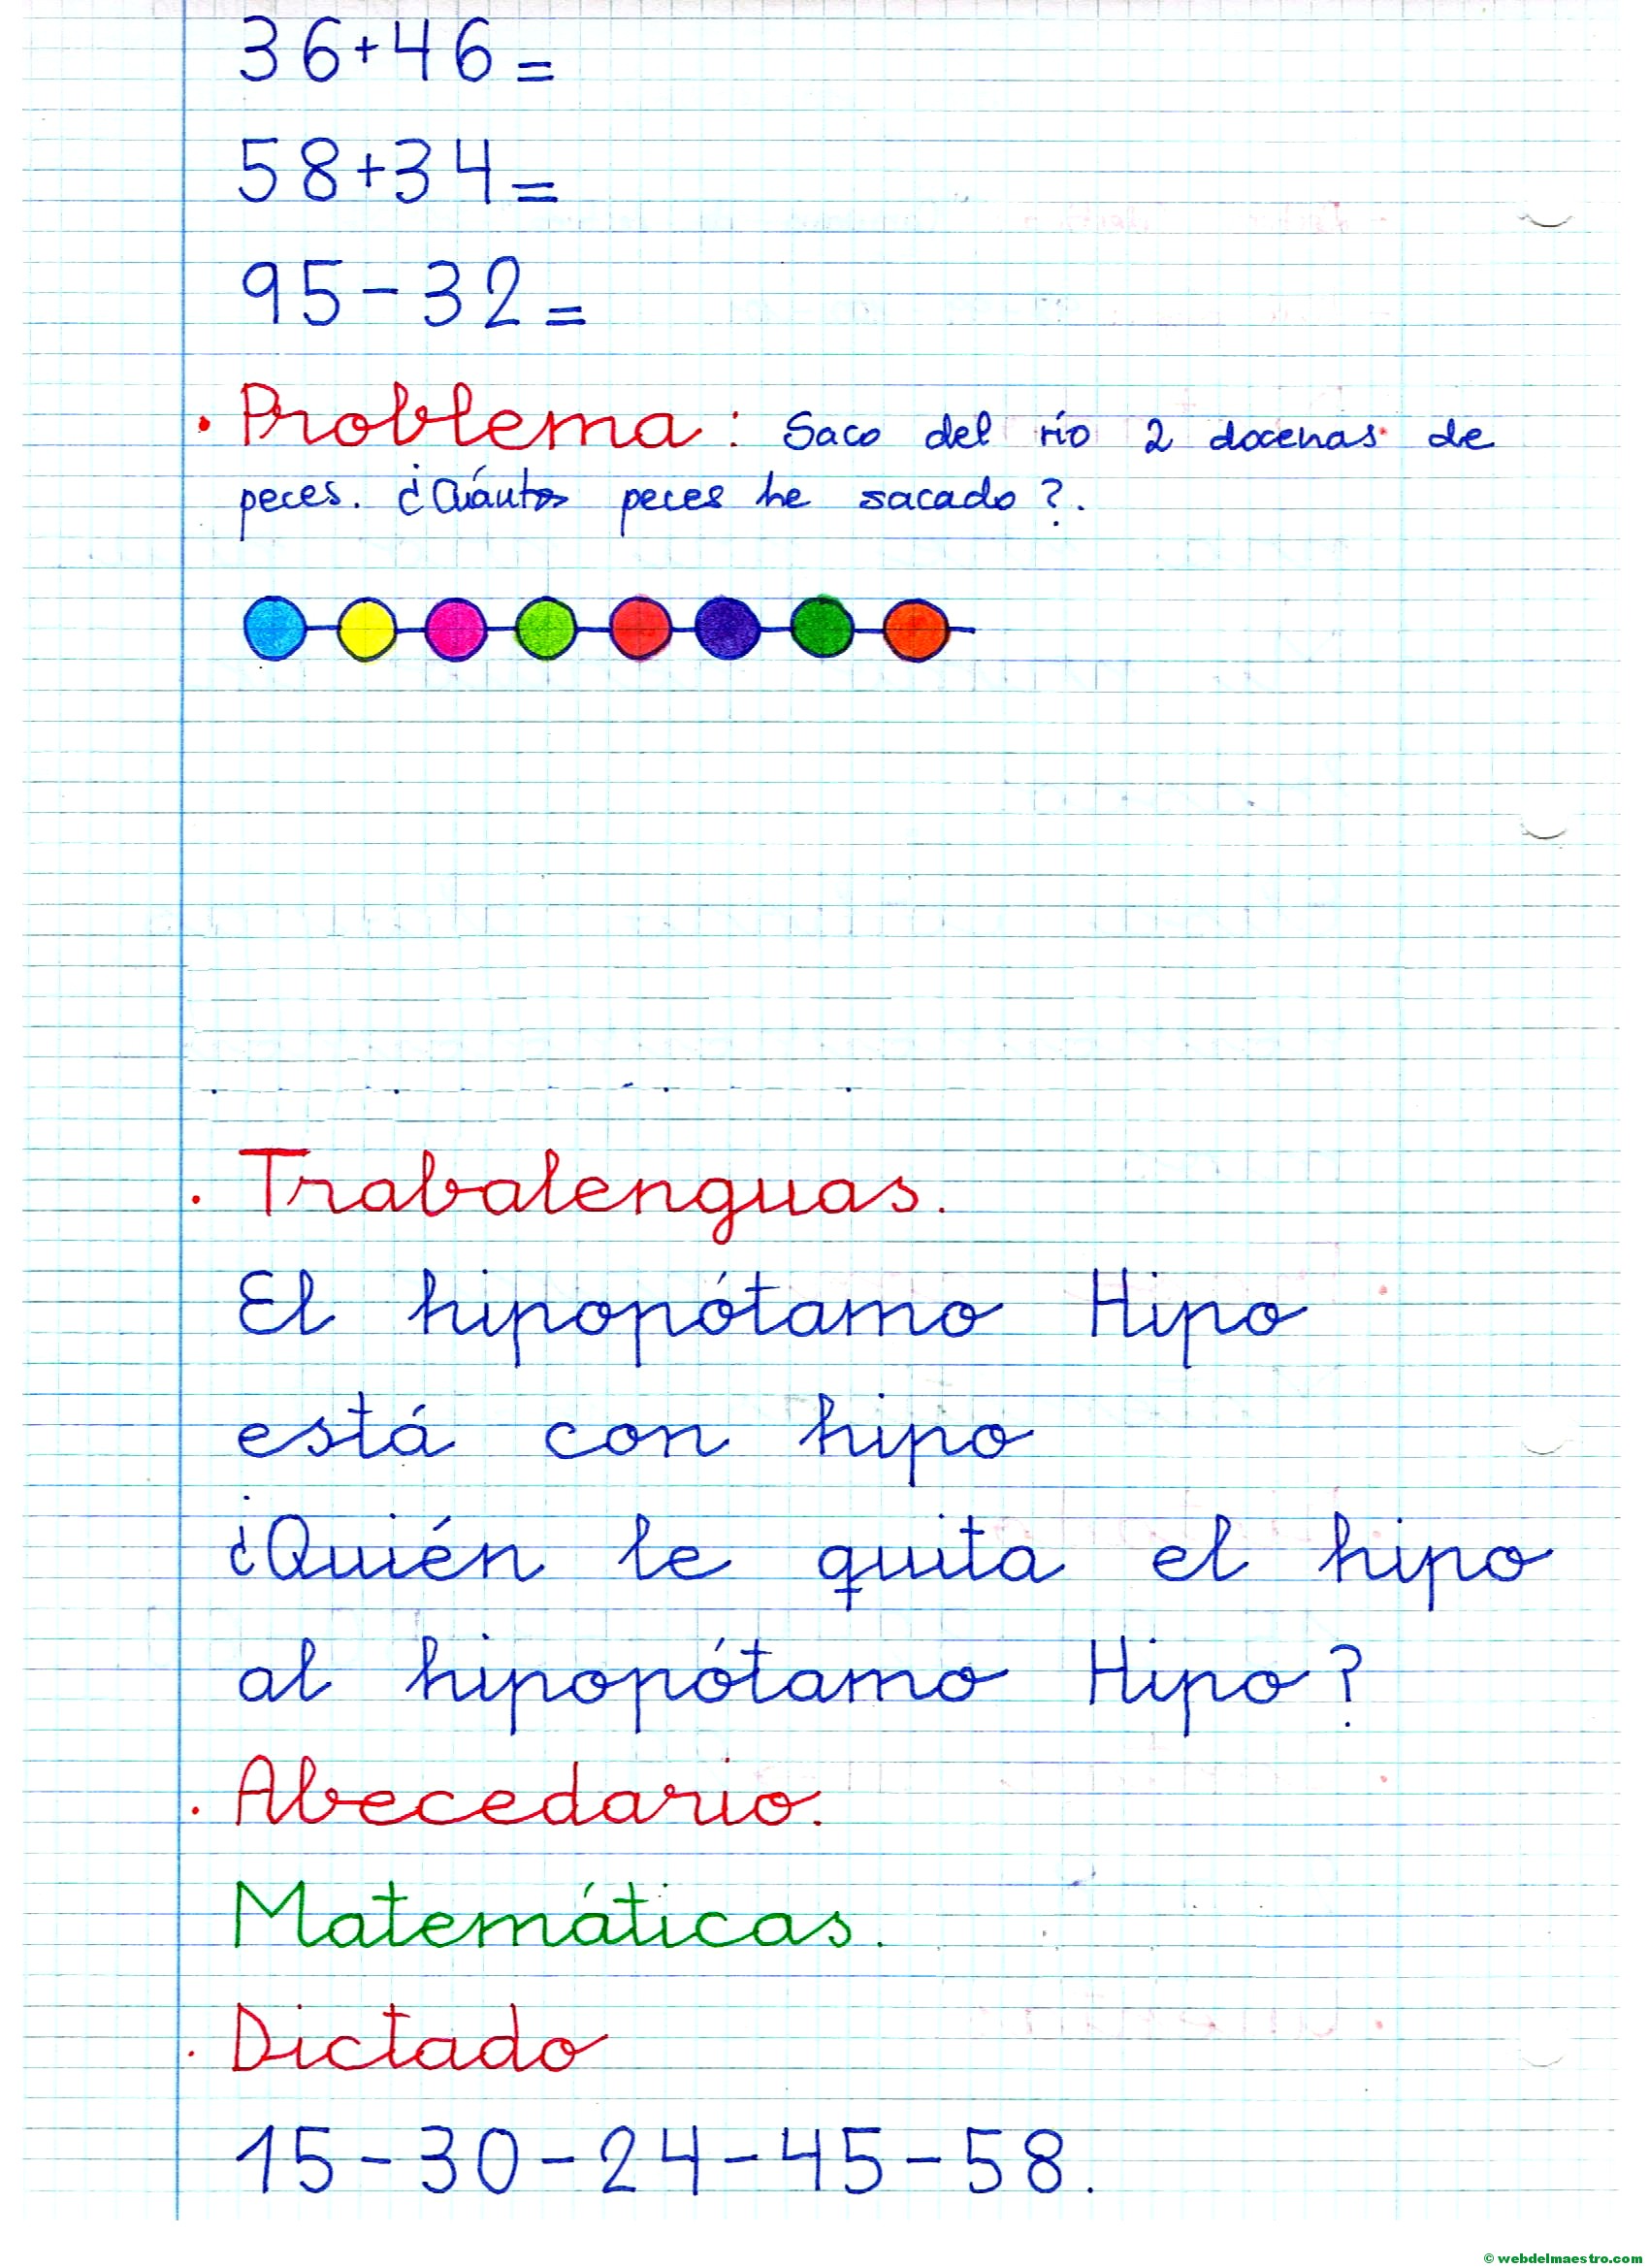 36+46=
58+34=
95-32=
· Problema: Saco del río 2 docenas de
peces. ¿Cuántos peces he sacado?.
· Trabalenguas.
El hipopótamo Hipo
está con hipo
¿Quién le quita el hipo
al hipopótamo Hipo?
· Abecedario.
Matemáticas.
· Dictado
15-30-24-45-58.
© webdelmaestro.com